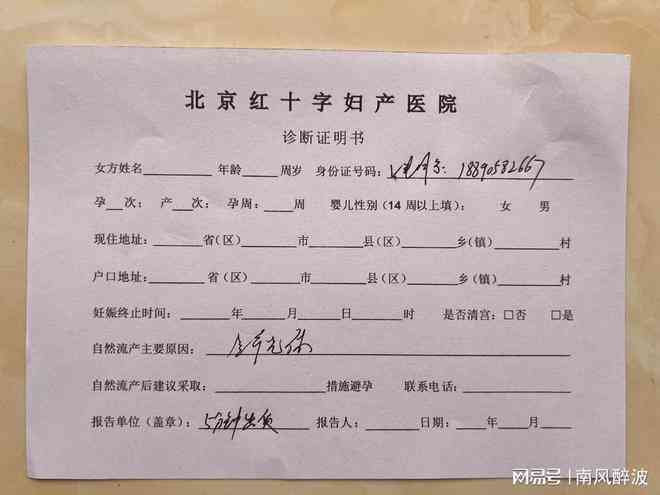 北京红十字妇产医院
诊断证明书
女方姓名________ 年龄____周岁 身份证号码: 18890582667
孕__次; 产__次; 孕周:____周 婴儿性别(14周以上填): 女 男
现住地址:______省(区)______市______县(区)______乡(镇)______村
户口地址:______省(区)______市______县(区)______乡(镇)______村
妊娠终止时间:______年______月______日______时 是否清宫:□否 □是
自然流产主要原因:
自然流产后建议采取:____________措施避孕 联系电话:____________
报告单位(盖章): 5分钟出货 报告人:______日期:____年____月____
网易号 | 南风醉波